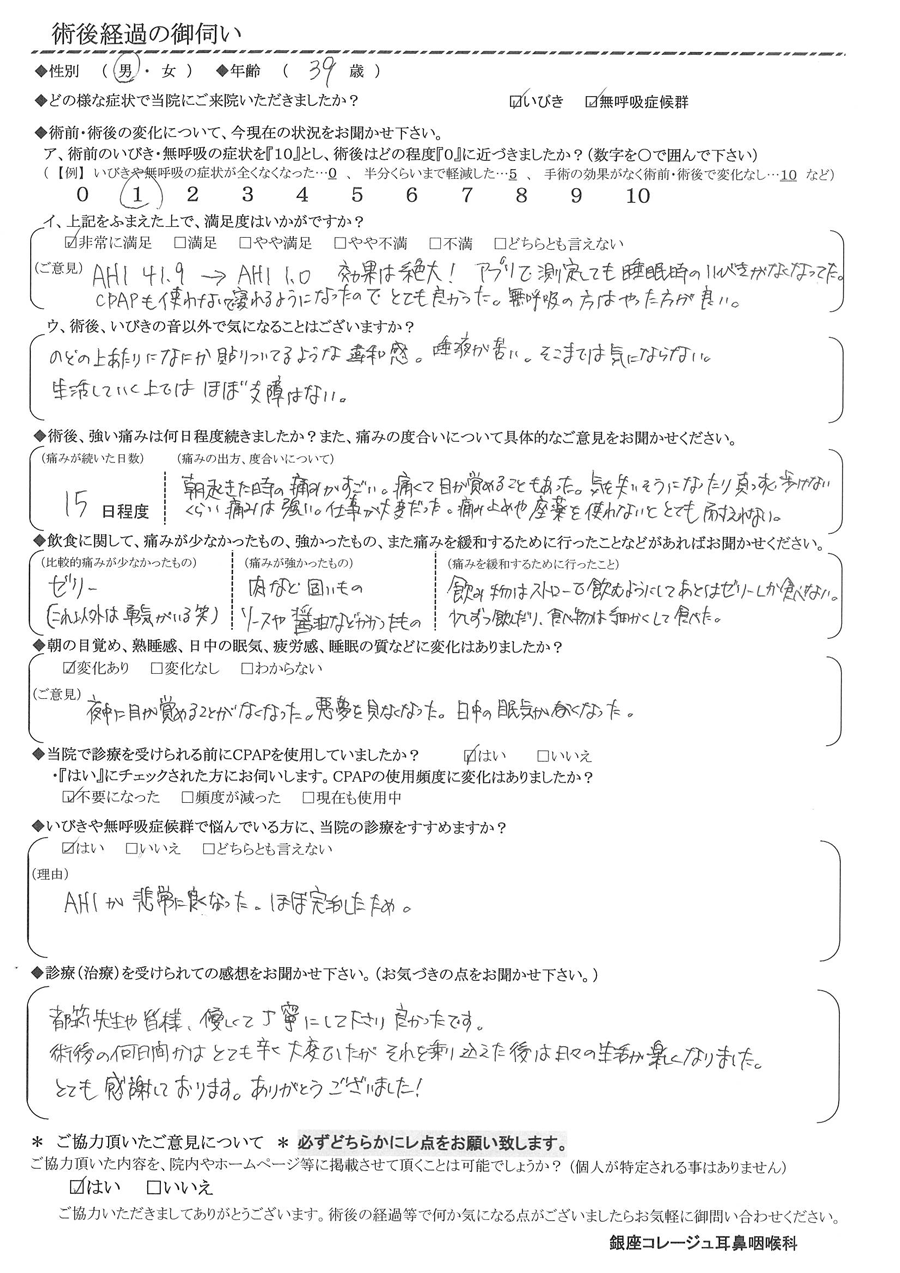 術後経過の御伺い
◆性別 （ 男 ・ 女 ） ◆年齢 （ 39 歳 ）
◆どの様な症状で当院にご来院いただきましたか？ ☑いびき ☑無呼吸症候群
◆術前・術後の変化について、今現在の状況をお聞かせ下さい。
ア、術前のいびき・無呼吸の症状を『10』とし、術後はどの程度『0』に近づきましたか？（数字を○で囲んで下さい）
（【例】 いびきや無呼吸の症状が全くなくなった…0 、 半分くらいまで軽減した…5 、 手術の効果がなく術前・術後で変化なし…10 など）
0 1 2 3 4 5 6 7 8 9 10
イ、上記をふまえた上で、満足度はいかがですか？
☑非常に満足 □満足 □やや満足 □やや不満 □不満 □どちらとも言えない
（ご意見） AHI 41.9 → AHI 1.0 効果は絶大！ アプリで測定しても睡眠時のいびきがなくなってた。
CPAPも使わないで寝れるようになったので とても良かった。無呼吸の方はやった方が良い。
ウ、術後、いびきの音以外で気になることはございますか？
のどの上あたりになにか貼りついてるような違和感。唾液が苦い。そこまでは気にならない。
生活していく上では ほぼ支障はない。
◆術後、強い痛みは何日程度続きましたか？また、痛みの度合いについて具体的なご意見をお聞かせください。
（痛みが続いた日数） （痛みの出方、度合いについて）
15 日程度
朝起きた時の痛みがすごい。痛くて目が覚めることもあった。気を失いそうになたり真っすぐ歩けない
くらい痛みは強い。仕事が大変だった。痛み止めや座薬を使わないととても耐えれない。
◆飲食に関して、痛みが少なかったもの、強かったもの、また痛みを緩和するために行ったことなどがあればお聞かせください。
（比較的痛みが少なかったもの） （痛みが強かったもの） （痛みを緩和するために行ったこと）
ゼリー
（これ以外は勇気がいる笑）
肉など固いもの
ソースや醤油などかかったもの
飲み物はストローで飲むようにしてあとはゼリーしか食べない。
少しずつ飲んだり、食べ物は細かくして食べた。
◆朝の目覚め、熟睡感、日中の眠気、疲労感、睡眠の質などに変化はありましたか？
☑変化あり □変化なし □わからない
（ご意見） 夜中に目が覚めることがなくなった。悪夢を見なくなった。日中の眠気がなくなった。
◆当院で診療を受けられる前にCPAPを使用していましたか？ ☑はい □いいえ
・『はい』にチェックされた方にお伺いします。CPAPの使用頻度に変化はありましたか？
☑不要になった □頻度が減った □現在も使用中
◆いびきや無呼吸症候群で悩んでいる方に、当院の診療をすすめますか？
☑はい □いいえ □どちらとも言えない
（理由）
AHIが 非常に良くなった。ほぼ完治したため。
◆診療（治療）を受けられての感想をお聞かせ下さい。（お気づきの点をお聞かせ下さい。）
都筑先生や皆様、優しくて丁寧にして下さり良かったです。
術後の何日間かは とても辛く 大変でしたが それを乗り越えた後は日々の生活が楽しくなりました。
とても 感謝しております。ありがとうございました！
＊ ご協力頂いたご意見について ＊ 必ずどちらかにレ点をお願い致します。
ご協力頂いた内容を、院内やホームページ等に掲載させて頂くことは可能でしょうか？（個人が特定される事はありません）
☑はい □いいえ
ご協力いただきましてありがとうございます。術後の経過等で何か気になる点がございましたらお気軽に御問い合わせください。
銀座コレージュ耳鼻咽喉科